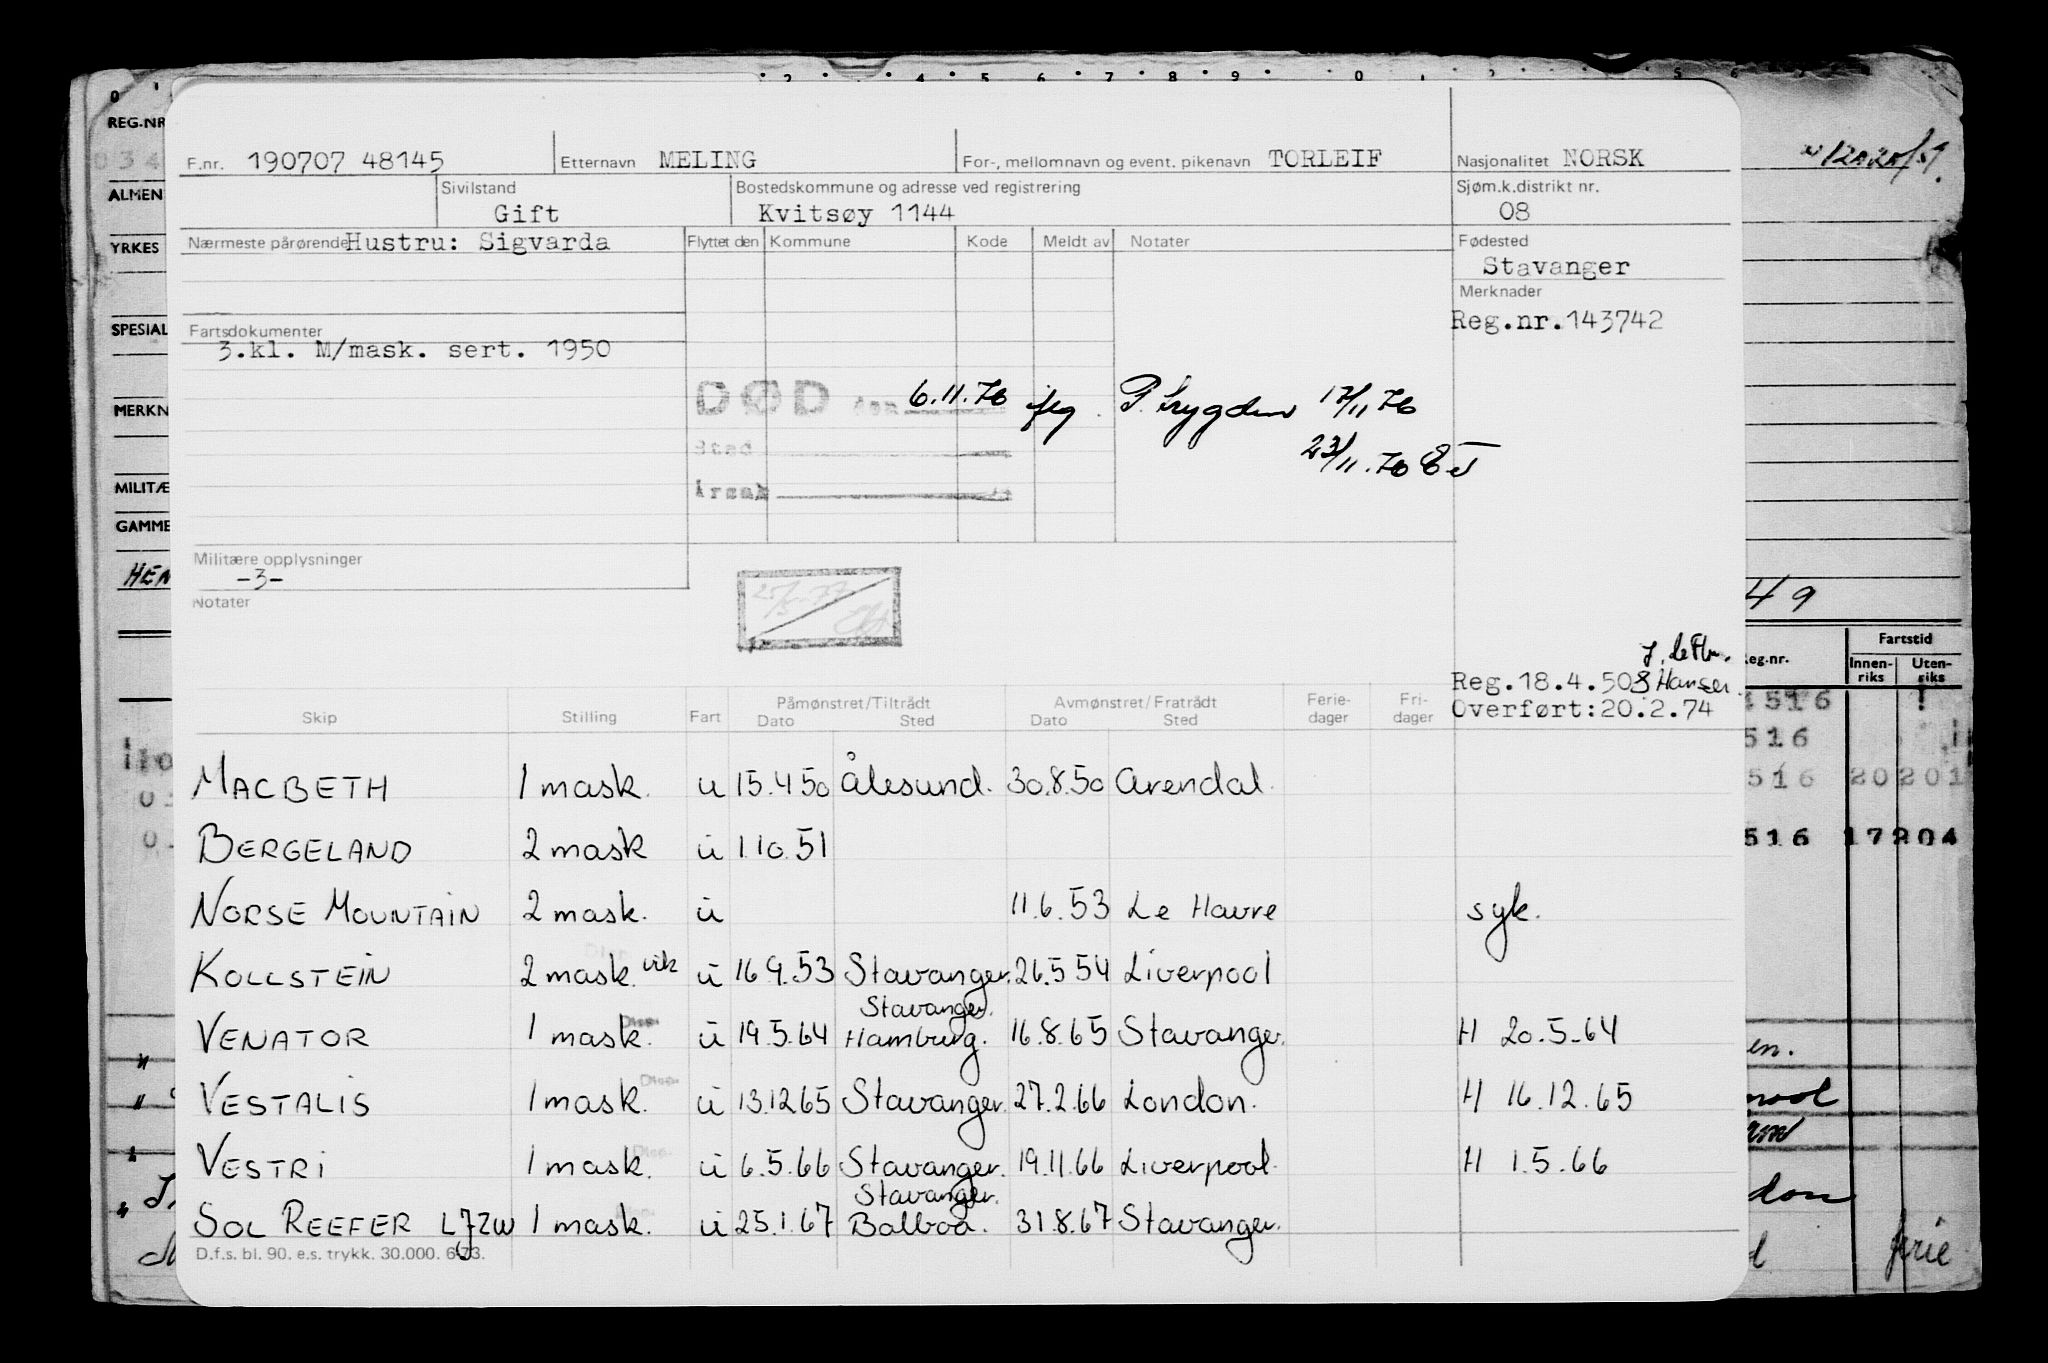 REG.NR
034
ALMEN
YRKES
SPESIAL
MERKN
MILITÆ
GAMME
F.nr. 190707 48145 Etternavn MELING For-, mellomnavn og event. pikenavn TORLEIF Nasjonalitet NORSK
Sivilstand Bostedskommune og adresse ved registrering Sjøm.k.distrikt nr.
Gift Kvitsøy 1144 08
Nærmeste pårørende Hustru: Sigvarda Flyttet den Kommune Kode Meldt av Notater Fødested
Stavanger
Merknader
Reg.nr.143742
Fartsdokumenter
3.kl. M/mask. sert. 1950
DØD den 6.11.76 P. trygden 17/11 76
Sted 23/11.76
Årsak
Militære opplysninger
-3-
Notater
49
Reg.18.4.50 Hansen
Overført:20.2.74
Skip Stilling Fart Påmønstret/Tiltrådt Dato Sted Avmønstret/Fratrådt Dato Sted Feriedager Fridager
MACBETH 1 mask. u 15.4 50 Ålesund. 30.8.50 Arendal.
BERGELAND 2 mask u 1.10.51
NORSE MOUNTAIN 2 mask. u 11.6.53 Le Havre syk.
KOLLSTEIN 2 mask. vik u 16 9.53 Stavanger. 26.5 54 Liverpool
VENATOR 1 mask. u 19.5.64 Stavanger. Hamburg. 16.8.65 Stavanger. H 20.5.64
VESTALIS 1 mask. u 13.12 65 Stavanger. 27.2.66 London. H 16.12.65
VESTRI 1 mask. u 6.5.66 Stavanger. 19.11.66 Liverpool. H 1.5.66
SOL REEFER LJZW 1 mask. u 25.1.67 Stavanger. Balboa. 31.8.67 Stavanger.
D.f.s. bl. 90. e.s. trykk. 30.000. 6.73.
Reg.nr. Fartstid
Innenriks Utenriks
4516
516
516 20201
516 17204
ferie